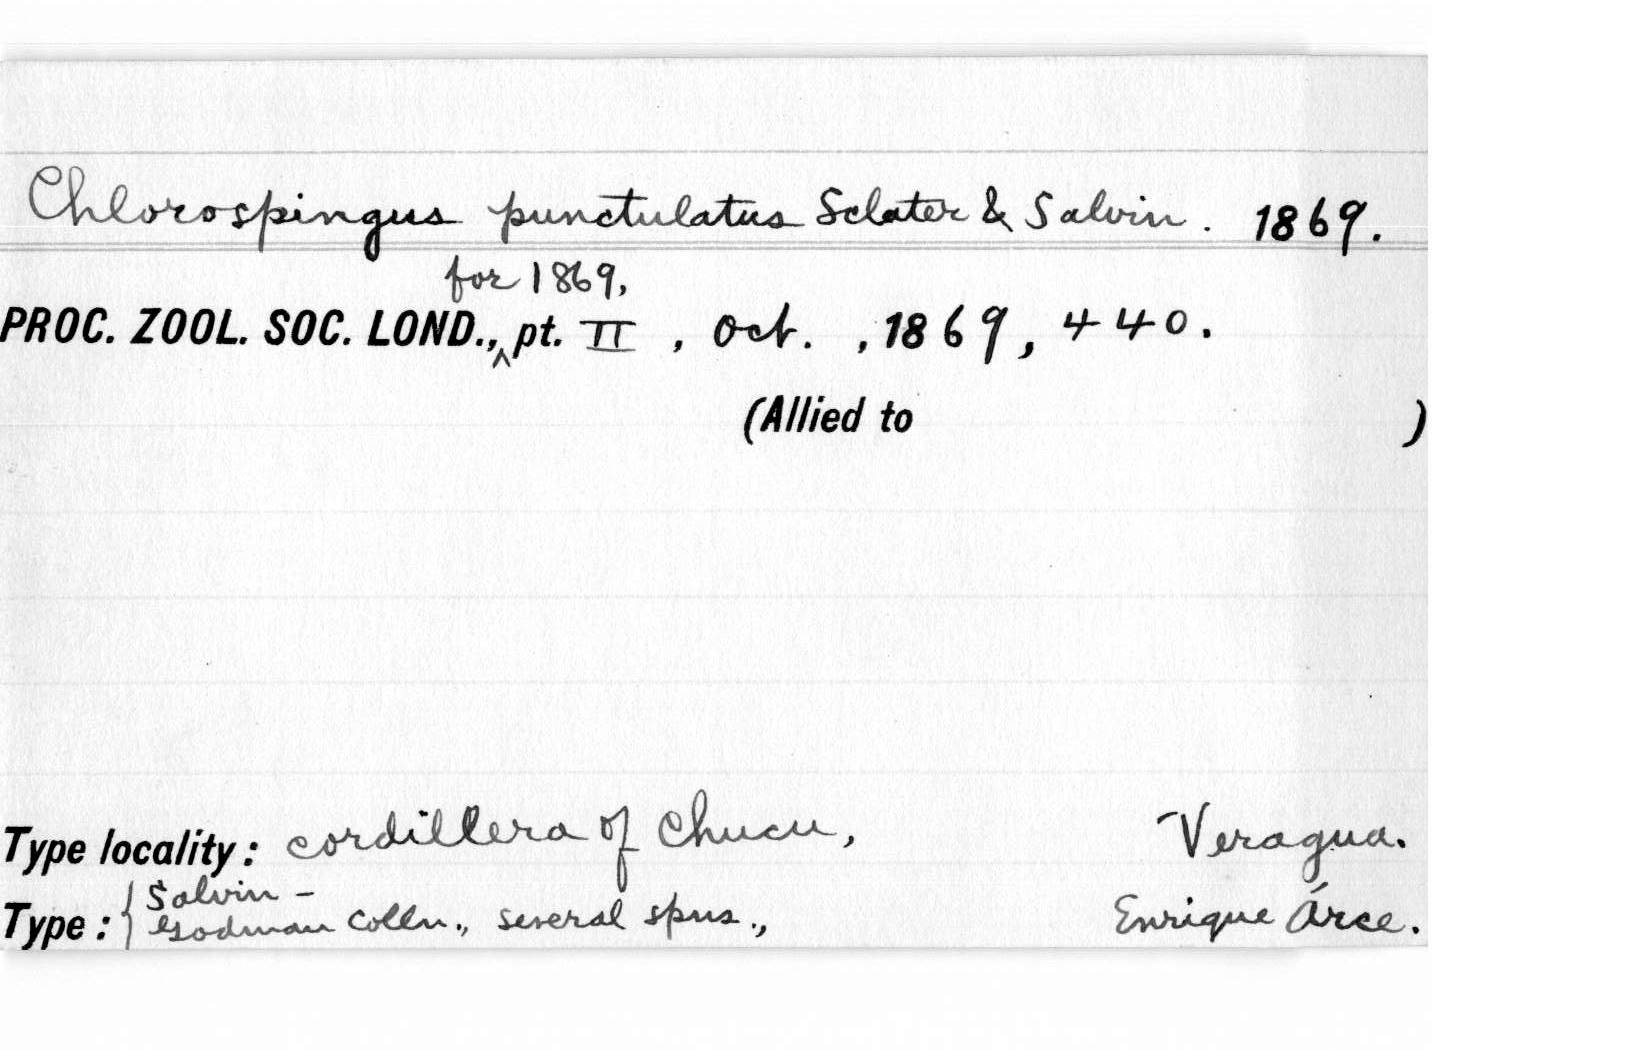 Chlorospingus punctulatus Sclater & Salvin. 1869.
for 1869,
PROC. ZOOL. SOC. LOND.,^ pt. II, Oct., 1869, 440.
(Allied to )
Type locality: cordillera of Chucu, Veragua.
Salvin -
Type: { Godman Colln., several spns., Enrique Árce.